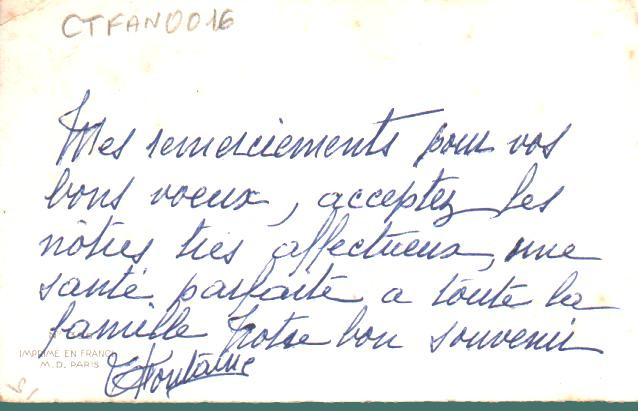 CTFAN0016
Mes remerciements pour vos
bons voeux, acceptez les
nôtres très affectueux, une
santé parfaite a toute la
famille Notre bon souvenir
IMPRIMÉ EN FRANCE
M.D. PARIS
Fontaine